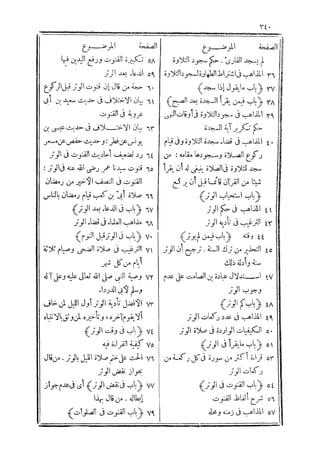 ٣٤٠
الصفحة الموضوع
لم يسجد القارئ . حكم سجود التلاوة
٣٦ المذاهب فى اشتراط الطهارة لسجود التلاوة
٣٧ ﴿باب ما يقول إذا سجد﴾
٣٨ ﴿باب فيمن يقرأ السجدة بعد الصبح﴾
٣٩ المذاهب فى سجود التلاوة فى أوقات النهى
حكم تكرير آية السجدة
٤٠ المذاهب فى قضاء سجدة التلاوة وفى قيام
ركوع الصلاة وسجودها مقامه : من
سجد للتلاوة فى الصلاة ينبغى له أن يقرأ
شيئا من القرآن قائما قبل أن يركع
﴿باب استحباب الوتر﴾
٤١ المذاهب فى حكم الوتر
٤٣ الترغيب فى تأدية الوتر
٤٤ وقته ﴿باب فيمن لم يوتر﴾
٤٥ التحذير من ترك السنة . ترجيح أن الوتر
سنة وأدلة ذلك
٤٧ استدلال عبادة بن الصامت على عدم
وجوب الوتر
٤٨ ﴿باب كم الوتر﴾
٤٩ المذاهب فى عدد ركعات الوتر
٥٠ الكيفيات الواردة فى صلاة الوتر
٥١ ﴿باب ما يقرأ فى الوتر﴾
٥٣ قراءة أكثر من سورة فى كل ركعة من
ركعات الوتر
٥٤ ﴿باب القنوت فى الوتر﴾
٥٦ شرح ألفاظ القنوت
٥٧ المذاهب فى زمنه ومحله
الصفحة الموضوع
٥٨ تكبيرة القنوت ورفع اليدين فيها
٥٩ الدعاء بعد الوتر
٦٠ حجة من قال إن قنوت الوتر قبل الركوع
٦١ بيان الاختلاف فى حديث سعيد بن أبى
عروبة فى القنوت
٦٣ بيان الاختلاف فى حديث عيسى بن
يونس عن فطر : وحديث حفص عن مسعر
٦٤ رد تضعيف أحاديث القنوت فى الوتر
٦٥ قنوت سيدنا عمر رضى الله عنه فى الوتر :
القنوت فى النصف الأخير من رمضان
٦٦ صلاة أبى بن كعب قيام رمضان بالناس
٦٧ ﴿باب فى الدعاء بعد الوتر﴾
٦٨ مذاهب العلماء فى قضاء الوتر
٧٠ ﴿باب فى الوتر قبل النوم﴾
٧١ الترغيب فى صلاة الضحى وصيام ثلاثة
أيام من كل شهر
٧٢ وصية النبى صلى الله تعالى عليه وعلى آله
وسلم لأبى الدرداء
٧٣ الأفضل تأدية الوتر أول الليل لمن خاف
ألا يقوم آخره ، وتأخيره لمن وثق بالانتباه
٧٤ ﴿باب فى وقت الوتر﴾
٧٥ كيفية القراءة فيه
٧٦ الحث على ختم صلاة الليل بالوتر . من قال
بجواز نقض الوتر
٧٧ ﴿باب فى نقض الوتر﴾ أى فى عدم جواز
إبطاله . من قال بهذا
٧٩ ﴿باب القنوت فى الصلوات﴾